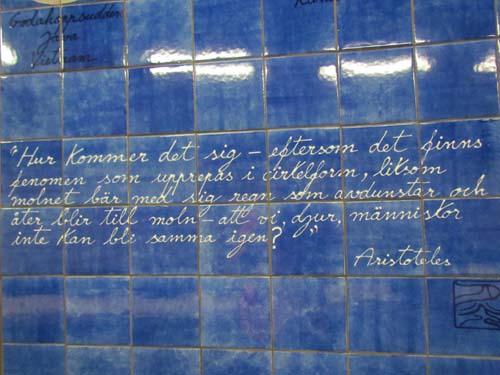 Godahoppsudden
Java
Vietnam
"Hur kommer det sig – eftersom det finns
fenomen som upprepas i cirkelform, liksom
molnet bär med sig regn som avdunstar och
åter blir till moln – att vi, djur, människor
inte kan bli samma igen?"
Aristoteles